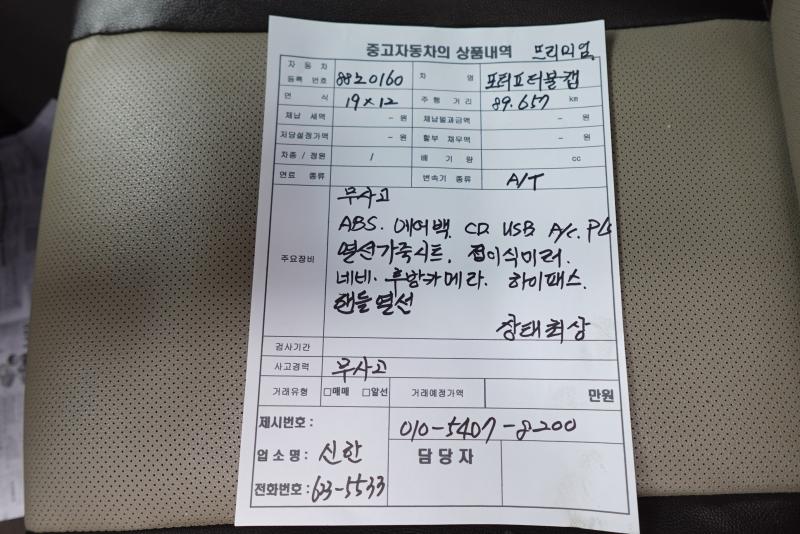 중고자동차의 상품내역 프리미엄
자동차 등록 번호 88노0160 차 명 포터Ⅱ더블캡
연 식 19×12 주행 거리 89.657 km
체납 세액 - 원 체납벌과금액 - 원
저당설정가액 - 원 할부 채무액 - 원
차종 / 정원 / 배 기 량 cc
연료 종류 변속기 종류 A/T
주요장비
무사고
ABS. 에어백. CD USB A/c. P/S
열선가죽시트. 접이식미러.
네비. 후방카메라. 하이패스.
핸들열선
상태최상
검사기간
사고경력 무사고
거래유형 □매매 □알선 거래예정가액 만원
제시번호 : 010-5407-8200
업 소 명 : 신한 담 당 자
전화번호 : 623-5533